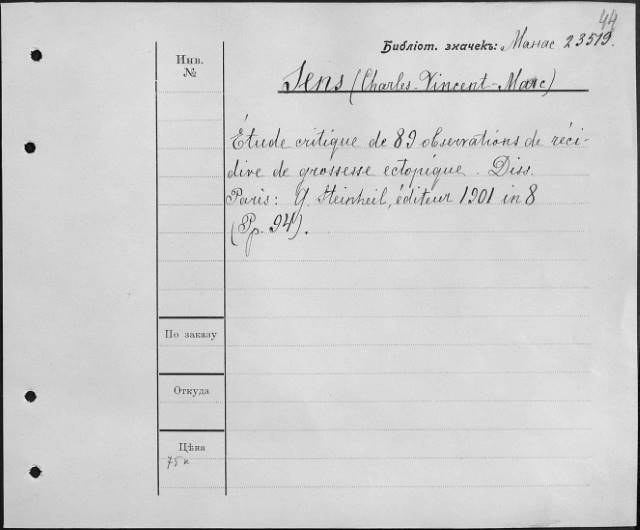 44
Библіот. значекъ: Манас 23519.
Инв.
№
Sens (Charles-Vincent-Marc)
Étude critique de 89 observations de réci-
dive de grossesse ectopique. Diss.
Paris: G. Steinheil, éditeur 1901 in 8
(Pp. 94).
По заказу
Откуда
Цѣна
75 к